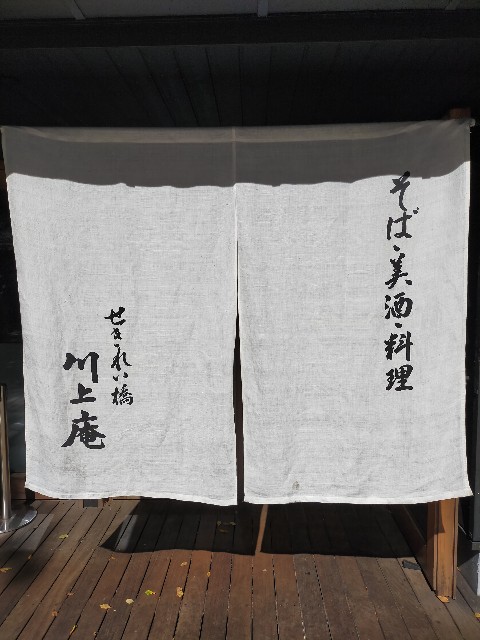 そば、美酒、料理
せきれい橋
川上庵